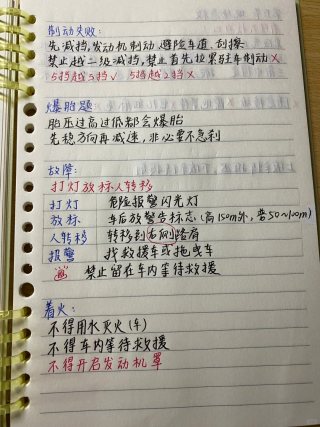 制动失败：
先减挡，发动机制动，避险车道，刮擦
禁止越二级减挡，禁止首先拉紧驻车制动×
5挡越3挡√ 5挡越2挡×
爆胎题：
胎压过高过低都会爆胎
先稳方向再减速，非必要不急刹
故障：
打灯放标人转移
打灯 危险报警闪光灯
放标 车后放警告标志（高150m外，普50~100m）
人转移 转移到右侧路肩
报警 找救援车或拖曳车
禁止留在车内等待救援
着火：
不得用水灭火（车）
不得车内等待救援
不得开启发动机罩